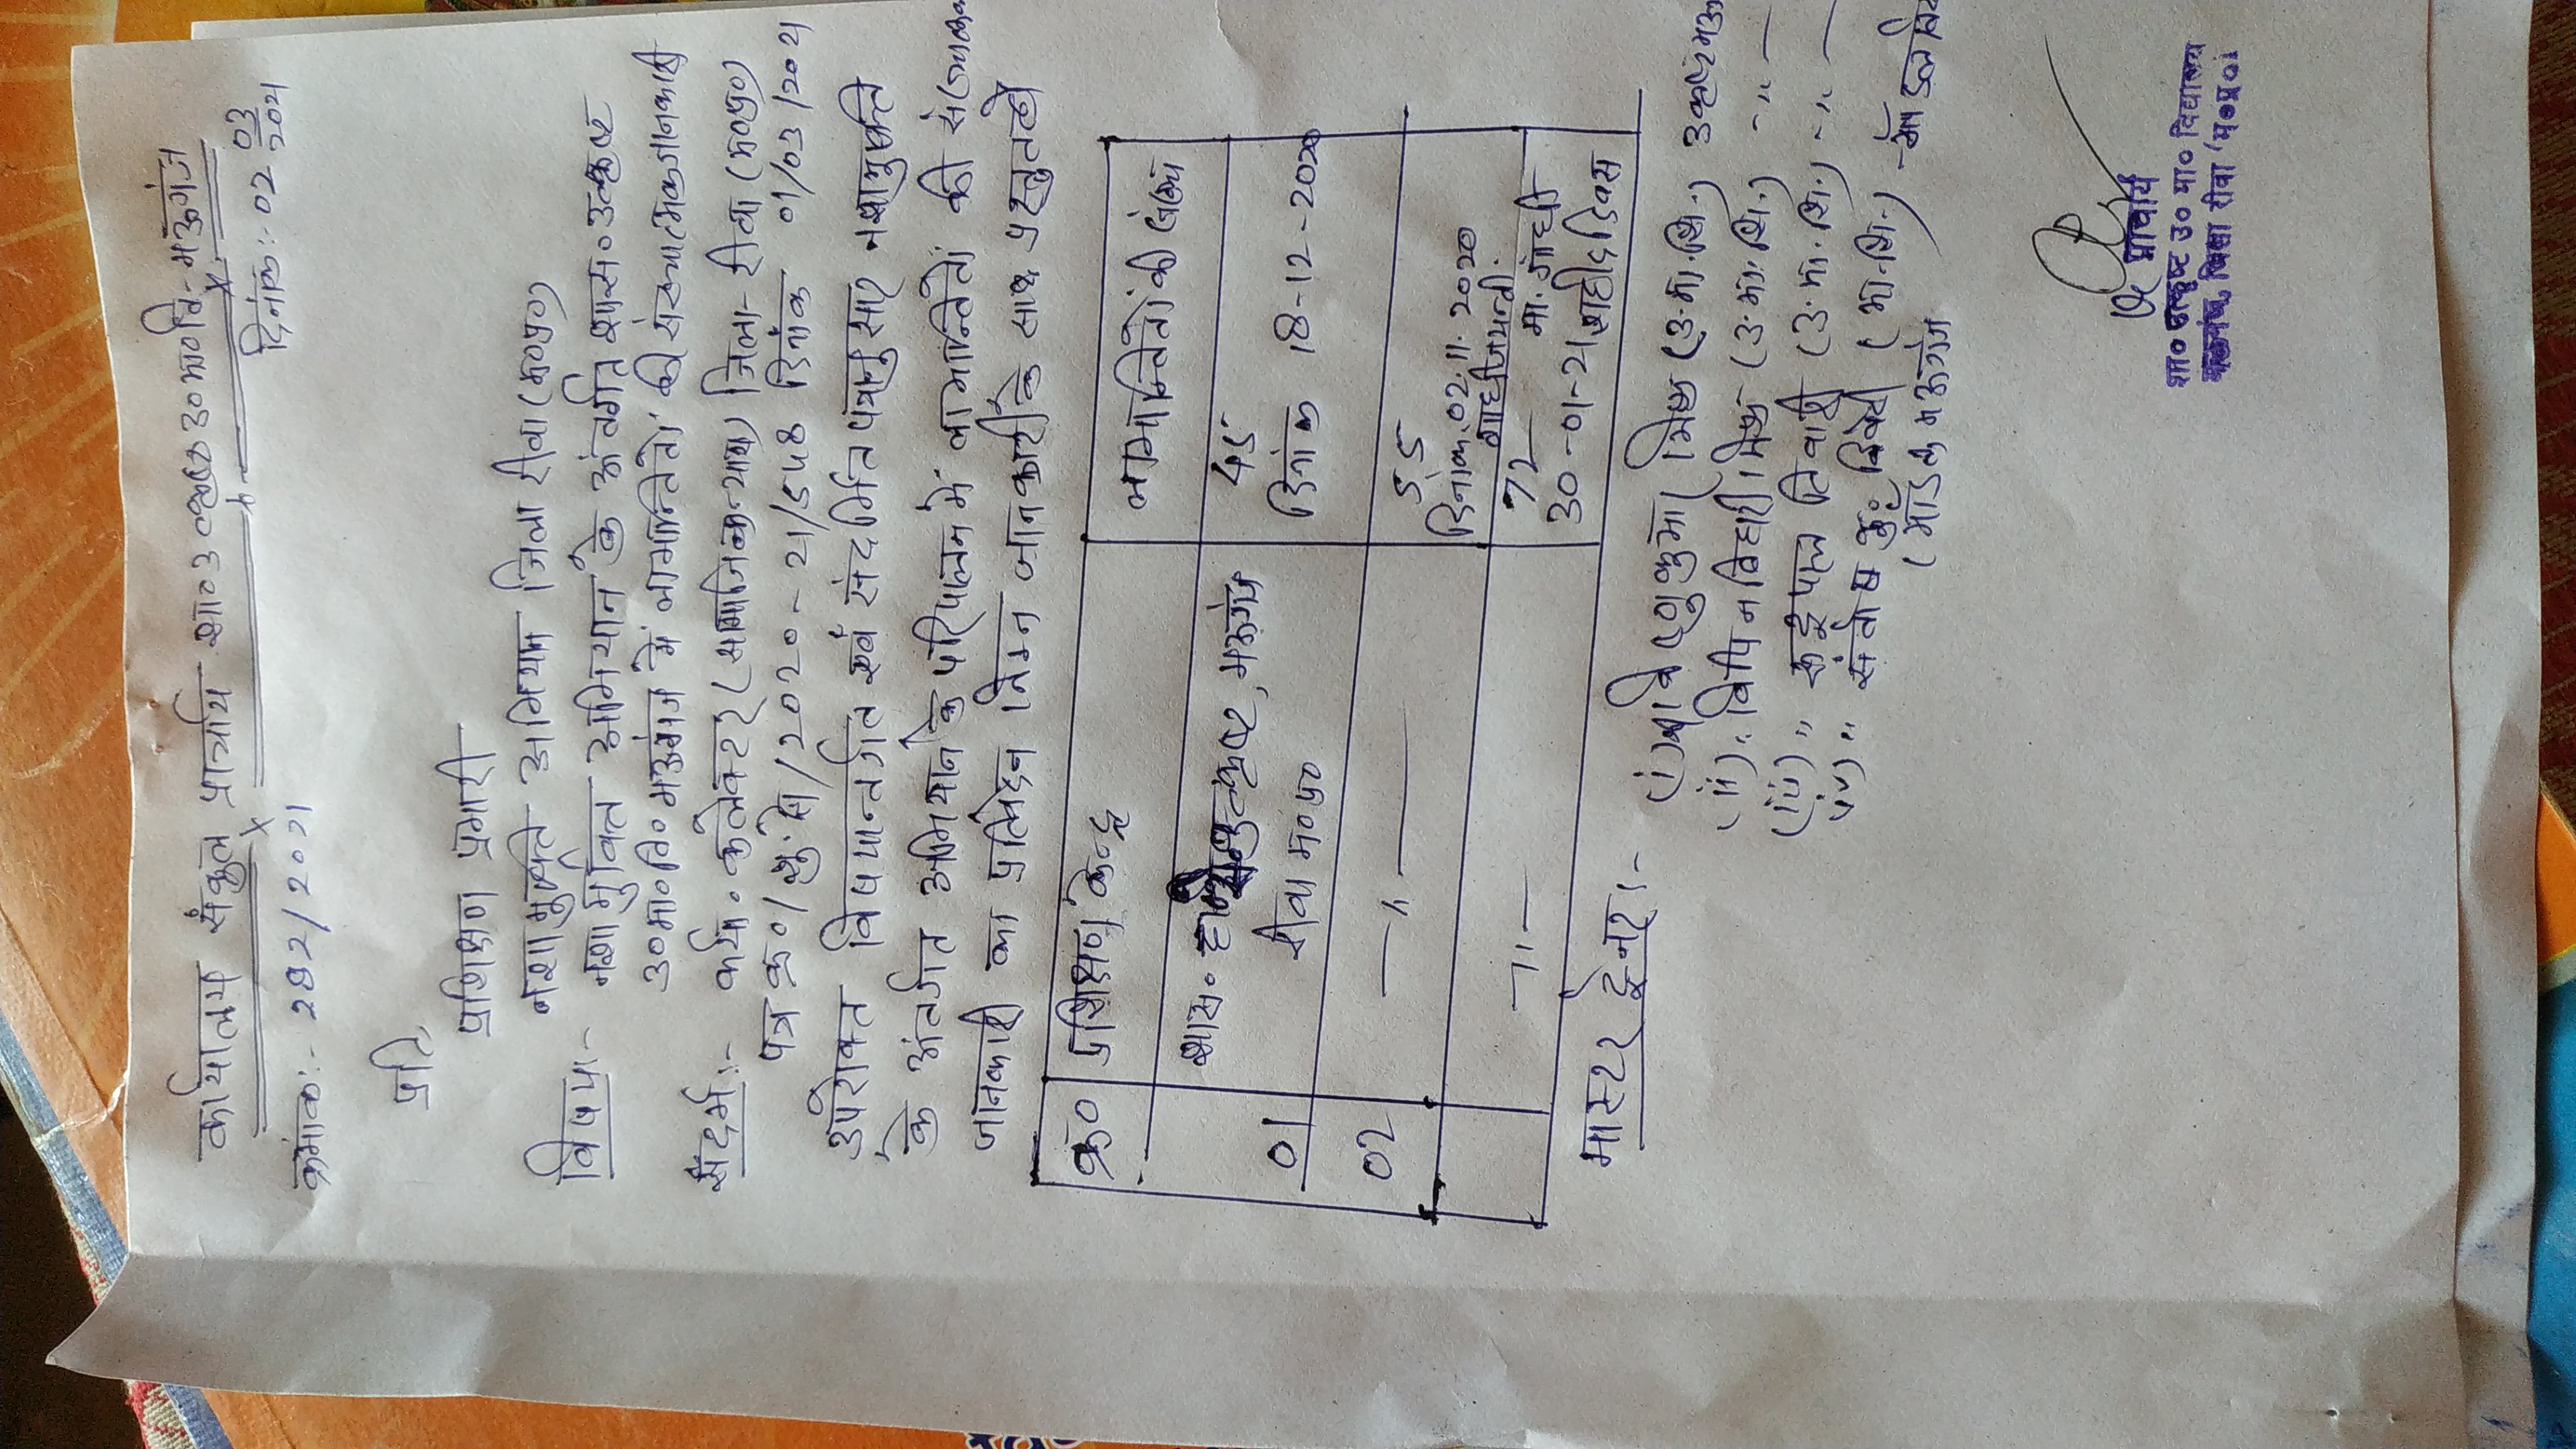 कार्यालय संकुल प्राचार्य शा० उत्कृष्ट उ०मा०वि०-मऊगंज
क्रमांक:- 292/2021 दिनांक:-02 03 2021
प्रति,
प्रशिक्षण प्रभारी
नशामुक्ति अभियान जिला रीवा (म०प्र०)
विषय:- नशामुक्ति अभियान के अंतर्गत शास० उत्कृष्ट
उ०मा०वि० मऊगंज में लाभान्वितों की संख्यात्मक जानकारी
संदर्भ:- कार्या० कलेक्टर (सामाजिक न्याय) जिला- रीवा (म०प्र०)
पत्र क्र०/ /2020-21/548 दिनांक 01/03/2021
उपरोक्त विषयान्तर्गत एवं संदर्भित पत्रानुसार नशामुक्ति
के अंतर्गत अभियान के परिपालन में लाभान्वितों की
जानकारी का प्रतिवेदन निम्न जानकारी के साथ प्रस्तुत है
क्र० प्रशिक्षण केन्द्र लाभान्वितों की संख्या
01 शास० उत्कृष्ट, मऊगंज रीवा म०प्र० 45 दिनांक 18-12-2020
02 —〃— 55 दिनांक.02.11.2020 गांधी जयन्ती.
—〃— 72 मा. गांधी 30-01-21 शहीद दिवस
मास्टर ट्रेनर:- (i) श्री विष्णु कुमार मिश्र (उ.मा.शि.)
(ii) 〃 विपिन बिहारी मिश्र (उ.मा.शि.) -〃—
(iii) 〃 रुद्रपाल तिवारी (उ.मा.शि.) -〃—
(iv) 〃 संतोष कु० द्विवेदी (मा.शि.)
(मॉडल मऊगंज
प्राचार्य
शा० उत्कृष्ट उ० मा० विद्यालय
मऊगंज, जिला रीवा (म०प्र०)